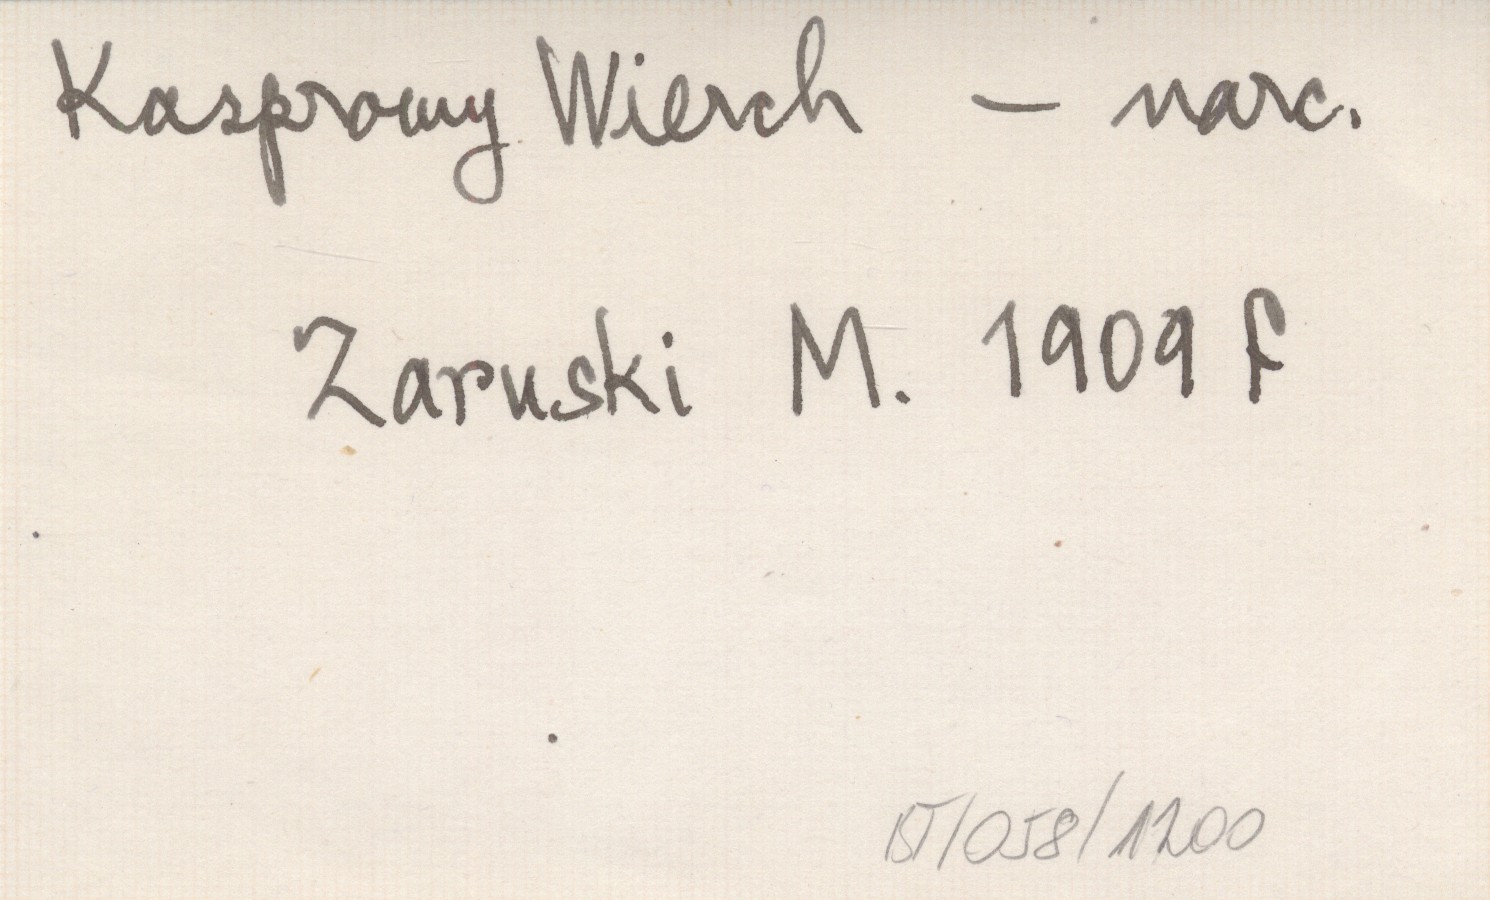 Kasprowy Wierch – narc.
Zaruski M. 1909 f
BT/058/1200